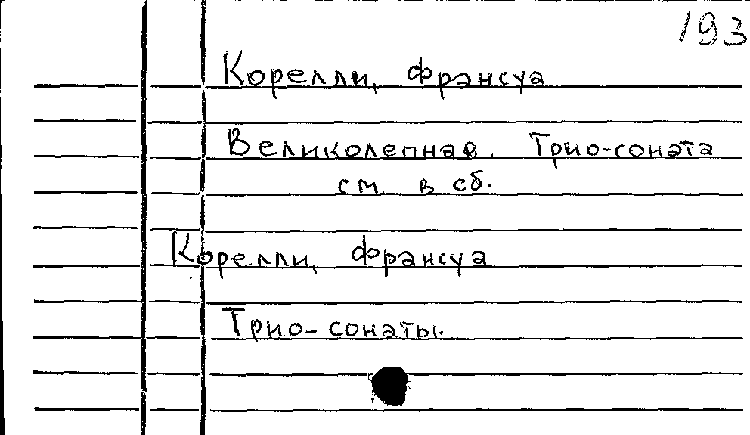 193
Корелли, Франсуа
Великолепная. Трио-соната
см. в сб.
Корелли, Франсуа
Трио-сонаты.